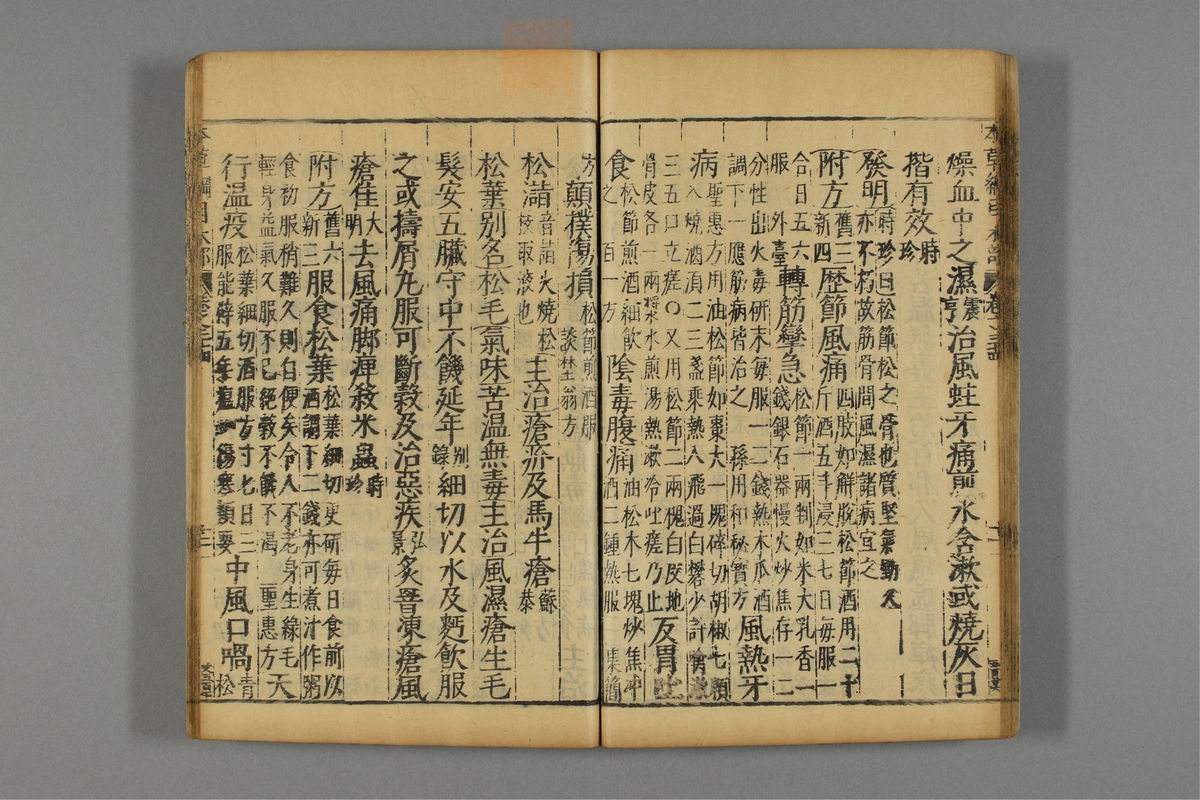 燥血中之濕震亨治風蛀牙痛煎水含漱或燒灰日
揩有效時珍
發明時珍曰松節松之骨也質堅氣勁久亦不朽故筋骨間風濕諸病宜之
附方舊三新四歷節風痛四肢如解脫松節酒用二十斤酒五斗浸三七日每服一
合日五六服外臺轉筋攣急松節一兩剉如米大乳香一錢銀石器慢火炒焦存一二
分性出火毒研末每服一二錢熱木瓜酒調下一應筋病皆治之孫用和秘寶方風熱牙
病聖惠方用油松節如棗大一塊碎切胡椒七顆入燒酒須二三盞乘熱入飛過白礬少許噙漱
三五口立瘥〇又用松節二兩槐白皮地骨皮各一兩漿水煎湯熱漱冷吐瘥乃止反胃吐
食松節煎酒細飲之百一方陰毒腹痛油松木七塊炒焦冲酒二鍾熱服集簡
方顛撲傷損松節煎酒服談埜翁方
松㵖音諸火燒松枝取液也主治瘡疥及馬牛瘡蘇恭
松葉別名松毛氣味苦温無毒主治風濕瘡生毛
髮安五臟守中不饑延年別錄細切以水及麪飲服
之或擣屑丸服可斷穀及治惡疾弘景炙罯凍瘡風
瘡佳大明去風痛脚痺殺米蟲時珍
附方舊六新三服食松葉松葉細切更研每日食前以酒調下二錢亦可煮汁作粥
食初服稍難久則自便矣令人不老身生綠毛輕身益氣久服不已絶穀不饑不渴聖惠方天
行温疫松葉細切酒服方寸匕日三服能辟五年瘟傷寒類要中風口喎青松